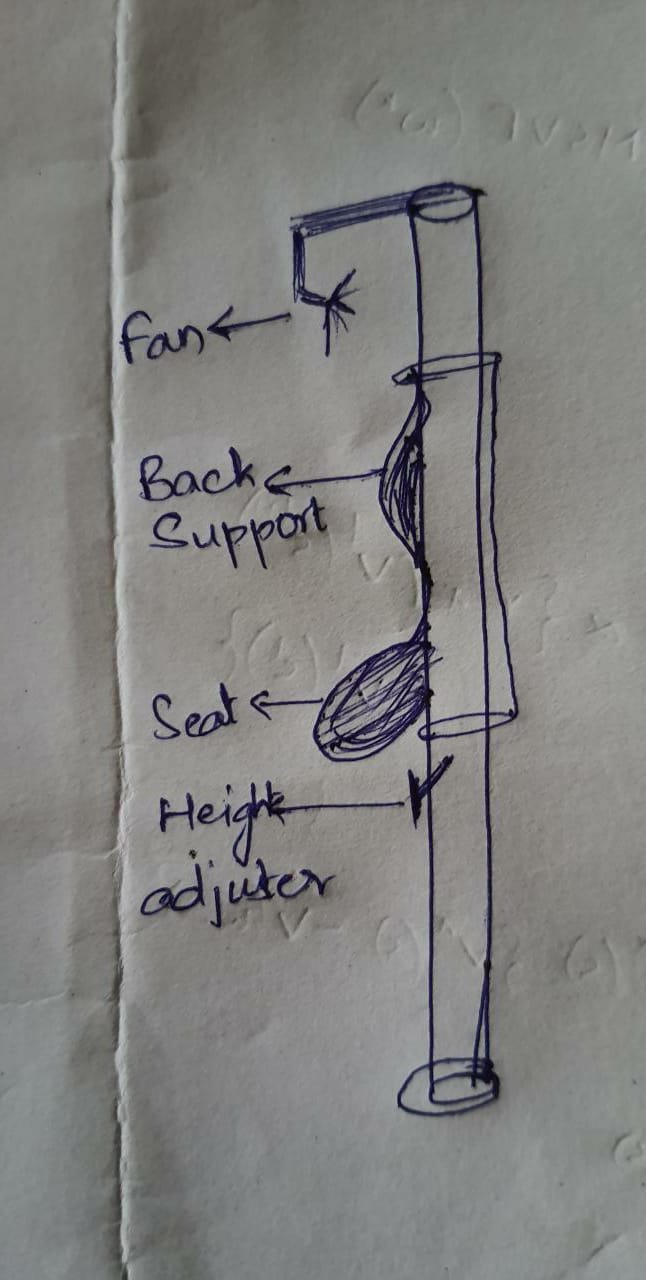 Fan
Back
Support
Seat
Height
adjuster